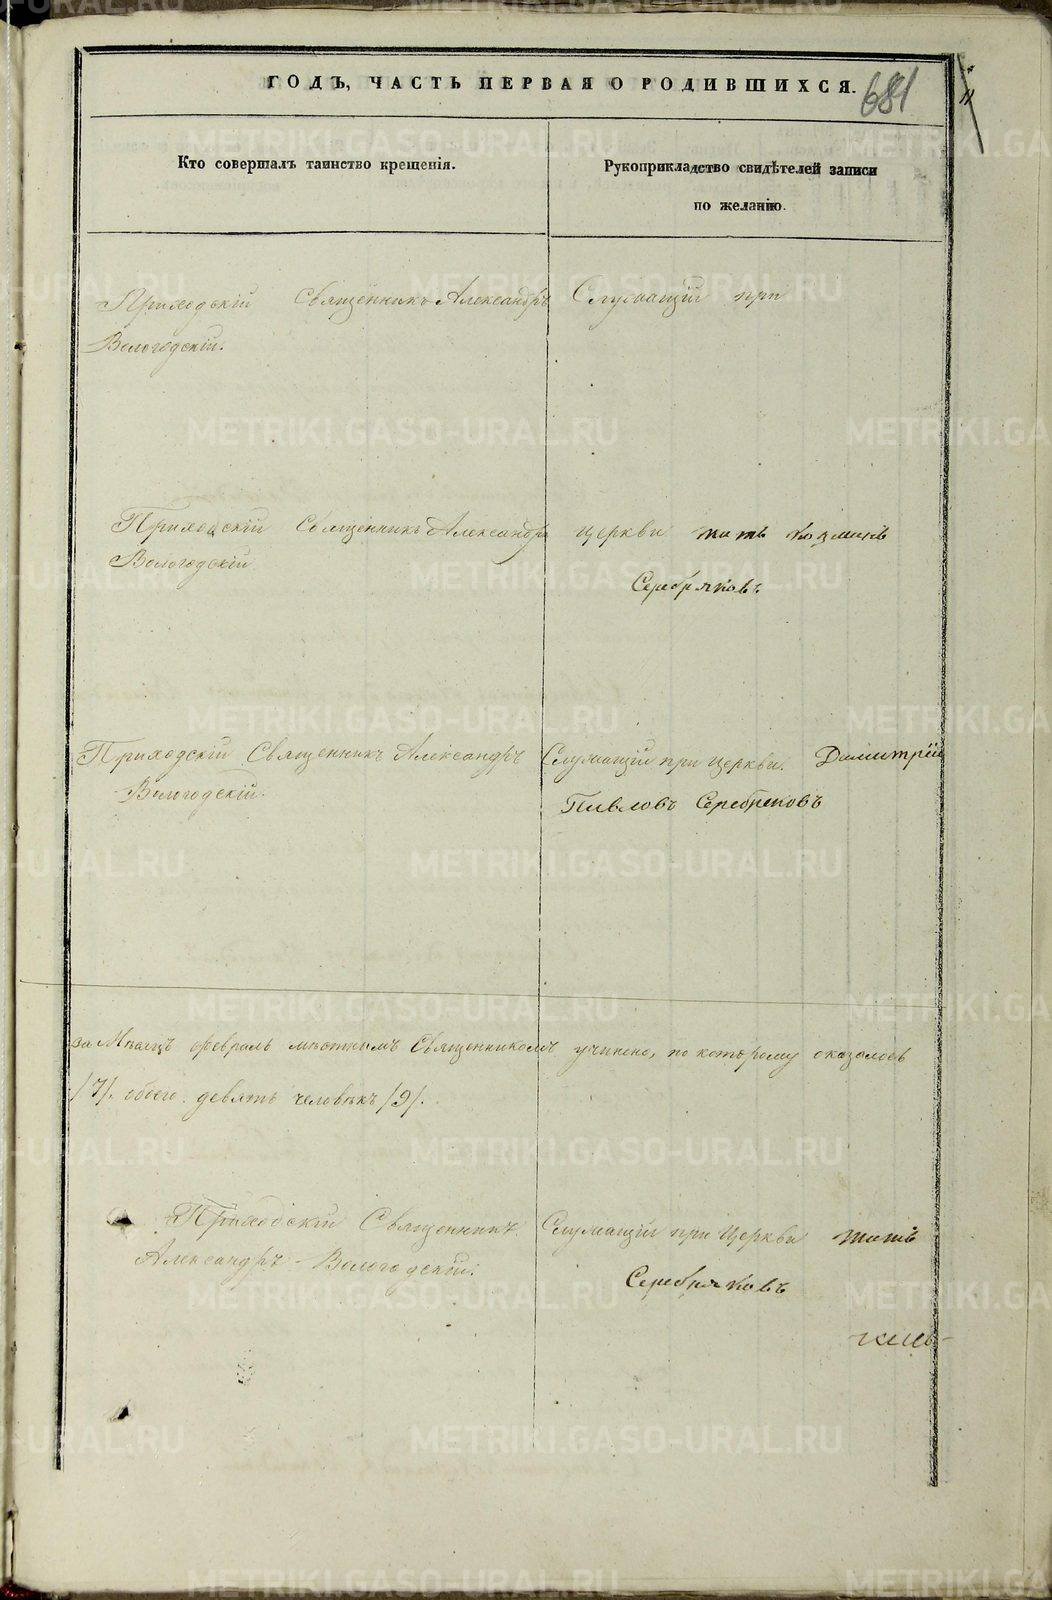 ГОДЪ, ЧАСТЬ ПЕРВАЯ О РОДИВШИХСЯ.
681
Кто совершалъ таинство крещенія.
Рукоприкладство свидѣтелей записи
по желанію.
Приходскій Священникъ Александръ
Вологодскій.
Служащій при
Приходскій Священникъ Александръ
Вологодскій
церкви
Серебряковъ
Приходскій Священникъ Александръ
Вологодскій.
Служащій при церкви. Димитрій
Павловъ Серебряковъ
за Мѣсяцъ февраль мѣстнымъ Священникомъ учинено, по которому оказалось
/7/. обоего девять человѣкъ /9/.
Приходскій Священникъ
Александръ Вологодскій.
Служащій при Церкви
Серебряковъ
METRIKI.GASO-URAL.RU